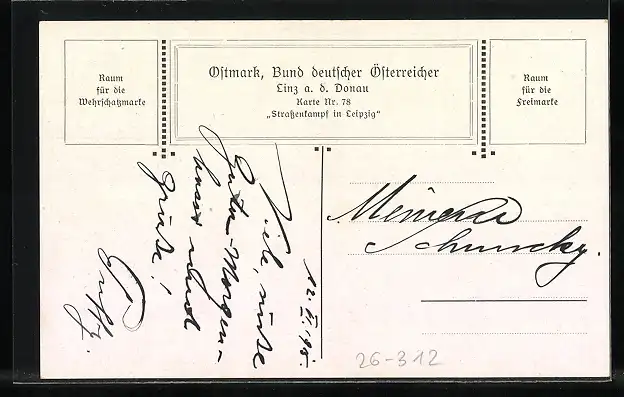 Raum
für die
Wehrschatzmarke
Ostmark, Bund deutscher Österreicher
Linz a. d. Donau
Karte Nr. 78
„Straßenkampf in Leipzig“
Raum
für die
Freimarke
Viele, süße
Guten-Morgen-
Grüße!
26-312